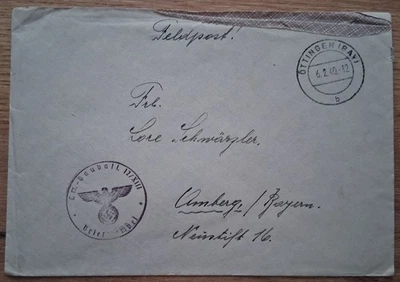 Feldpost!
ÖTTINGEN (BAY)
6.2.40.-12
b
Frl.
Lore Schwärzler.
Amberg./Bayern.
Neustift 16.
Baubatl. 17/XIII